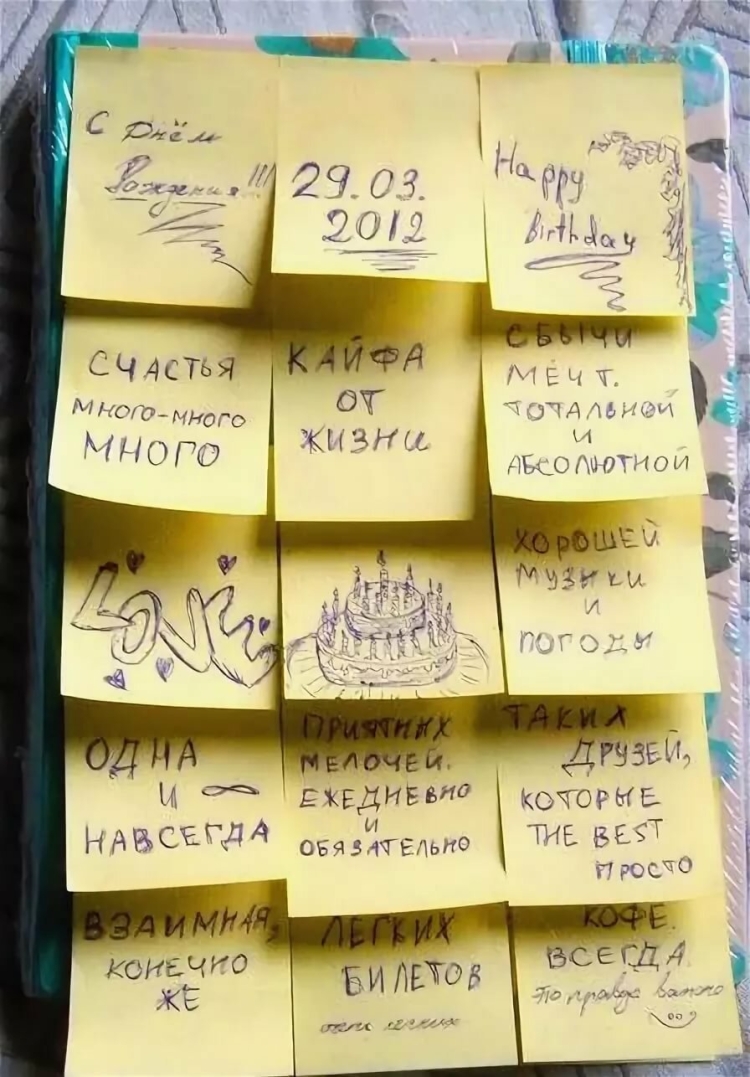 С Днём
Рождения!!!
29.03.
2012
Happy
Birthday
СЧАСТЬЯ
МНОГО-МНОГО
МНОГО
КАЙФА
ОТ
ЖИЗНИ
СБЫЧИ
МЕЧТ.
ТОТАЛЬНОЙ
И
АБСОЛЮТНОЙ
LOVE
ХОРОШЕЙ
МУЗЫКИ
И
ПОГОДЫ
ОДНА
И ∞
НАВСЕГДА
ПРИЯТНЫХ
МЕЛОЧЕЙ.
ЕЖЕДНЕВНО
И
ОБЯЗАТЕЛЬНО
ТАКИХ
ДРУЗЕЙ,
КОТОРЫЕ
THE BEST
ПРОСТО
ВЗАИМНАЯ,
КОНЕЧНО
ЖЕ
ЛЕГКИХ
БИЛЕТОВ
КОФЕ.
ВСЕГДА.
Это правда важно